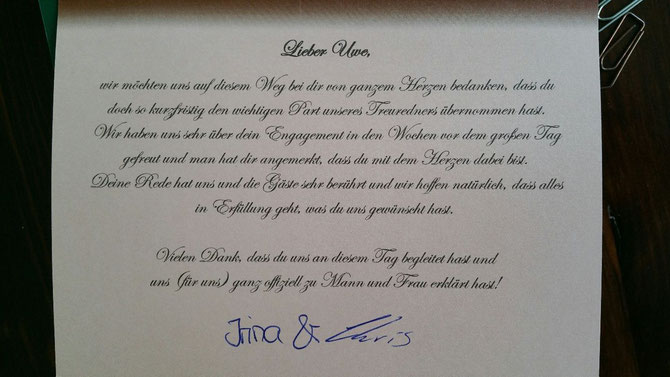 Lieber Uwe,
wir möchten uns auf diesem Weg bei dir von ganzem Herzen bedanken, dass du
doch so kurzfristig den wichtigen Part unseres Treuredners übernommen hast.
Wir haben uns sehr über dein Engagement in den Wochen vor dem großen Tag
gefreut und man hat dir angemerkt, dass du mit dem Herzen dabei bist.
Deine Rede hat uns und die Gäste sehr berührt und wir hoffen natürlich, dass alles
in Erfüllung geht, was du uns gewünscht hast.
Vielen Dank, dass du uns an diesem Tag begleitet hast und
uns (für uns) ganz offiziell zu Mann und Frau erklärt hast!
Irina & Chris